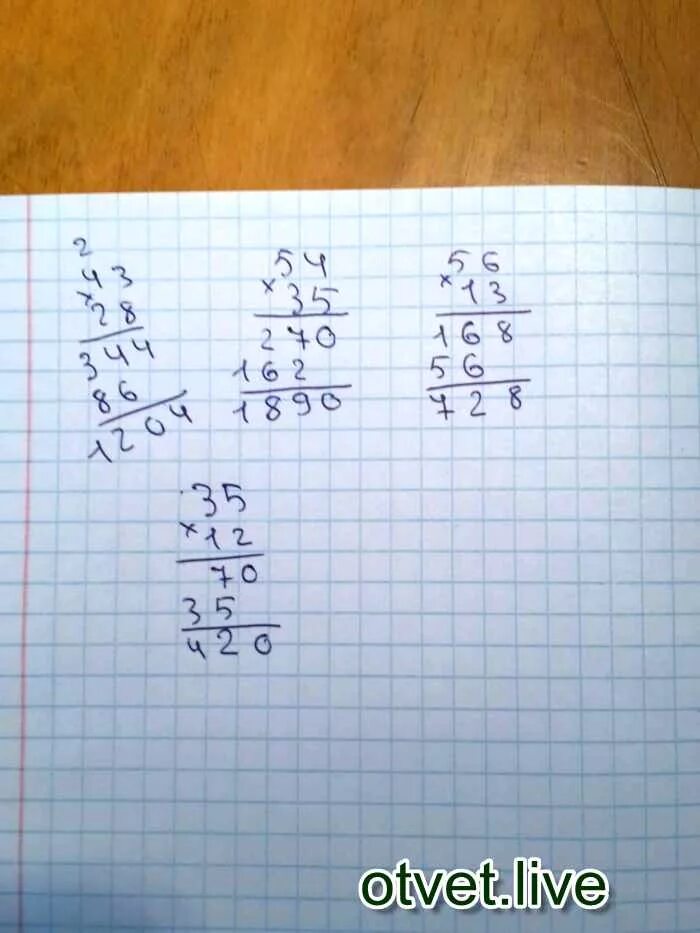 2
43
×28
344
86
1204
54
×35
270
162
1890
56
×13
168
56
728
35
×12
70
35
420
otvet.live